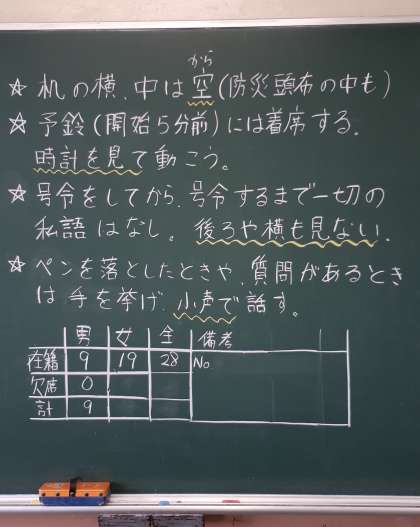 から
☆ 机の横、中は空(防災頭巾の中も)
☆ 予鈴(開始5分前)には着席する。
時計を見て動こう。
☆ 号令をしてから、号令するまで一切の
私語はなし。後ろや横も見ない。
☆ ペンを落としたときや、質問があるとき
は手を挙げ、小声で話す。
男 女 全 備考
在籍 9 19 28 No
欠席 0
計 9